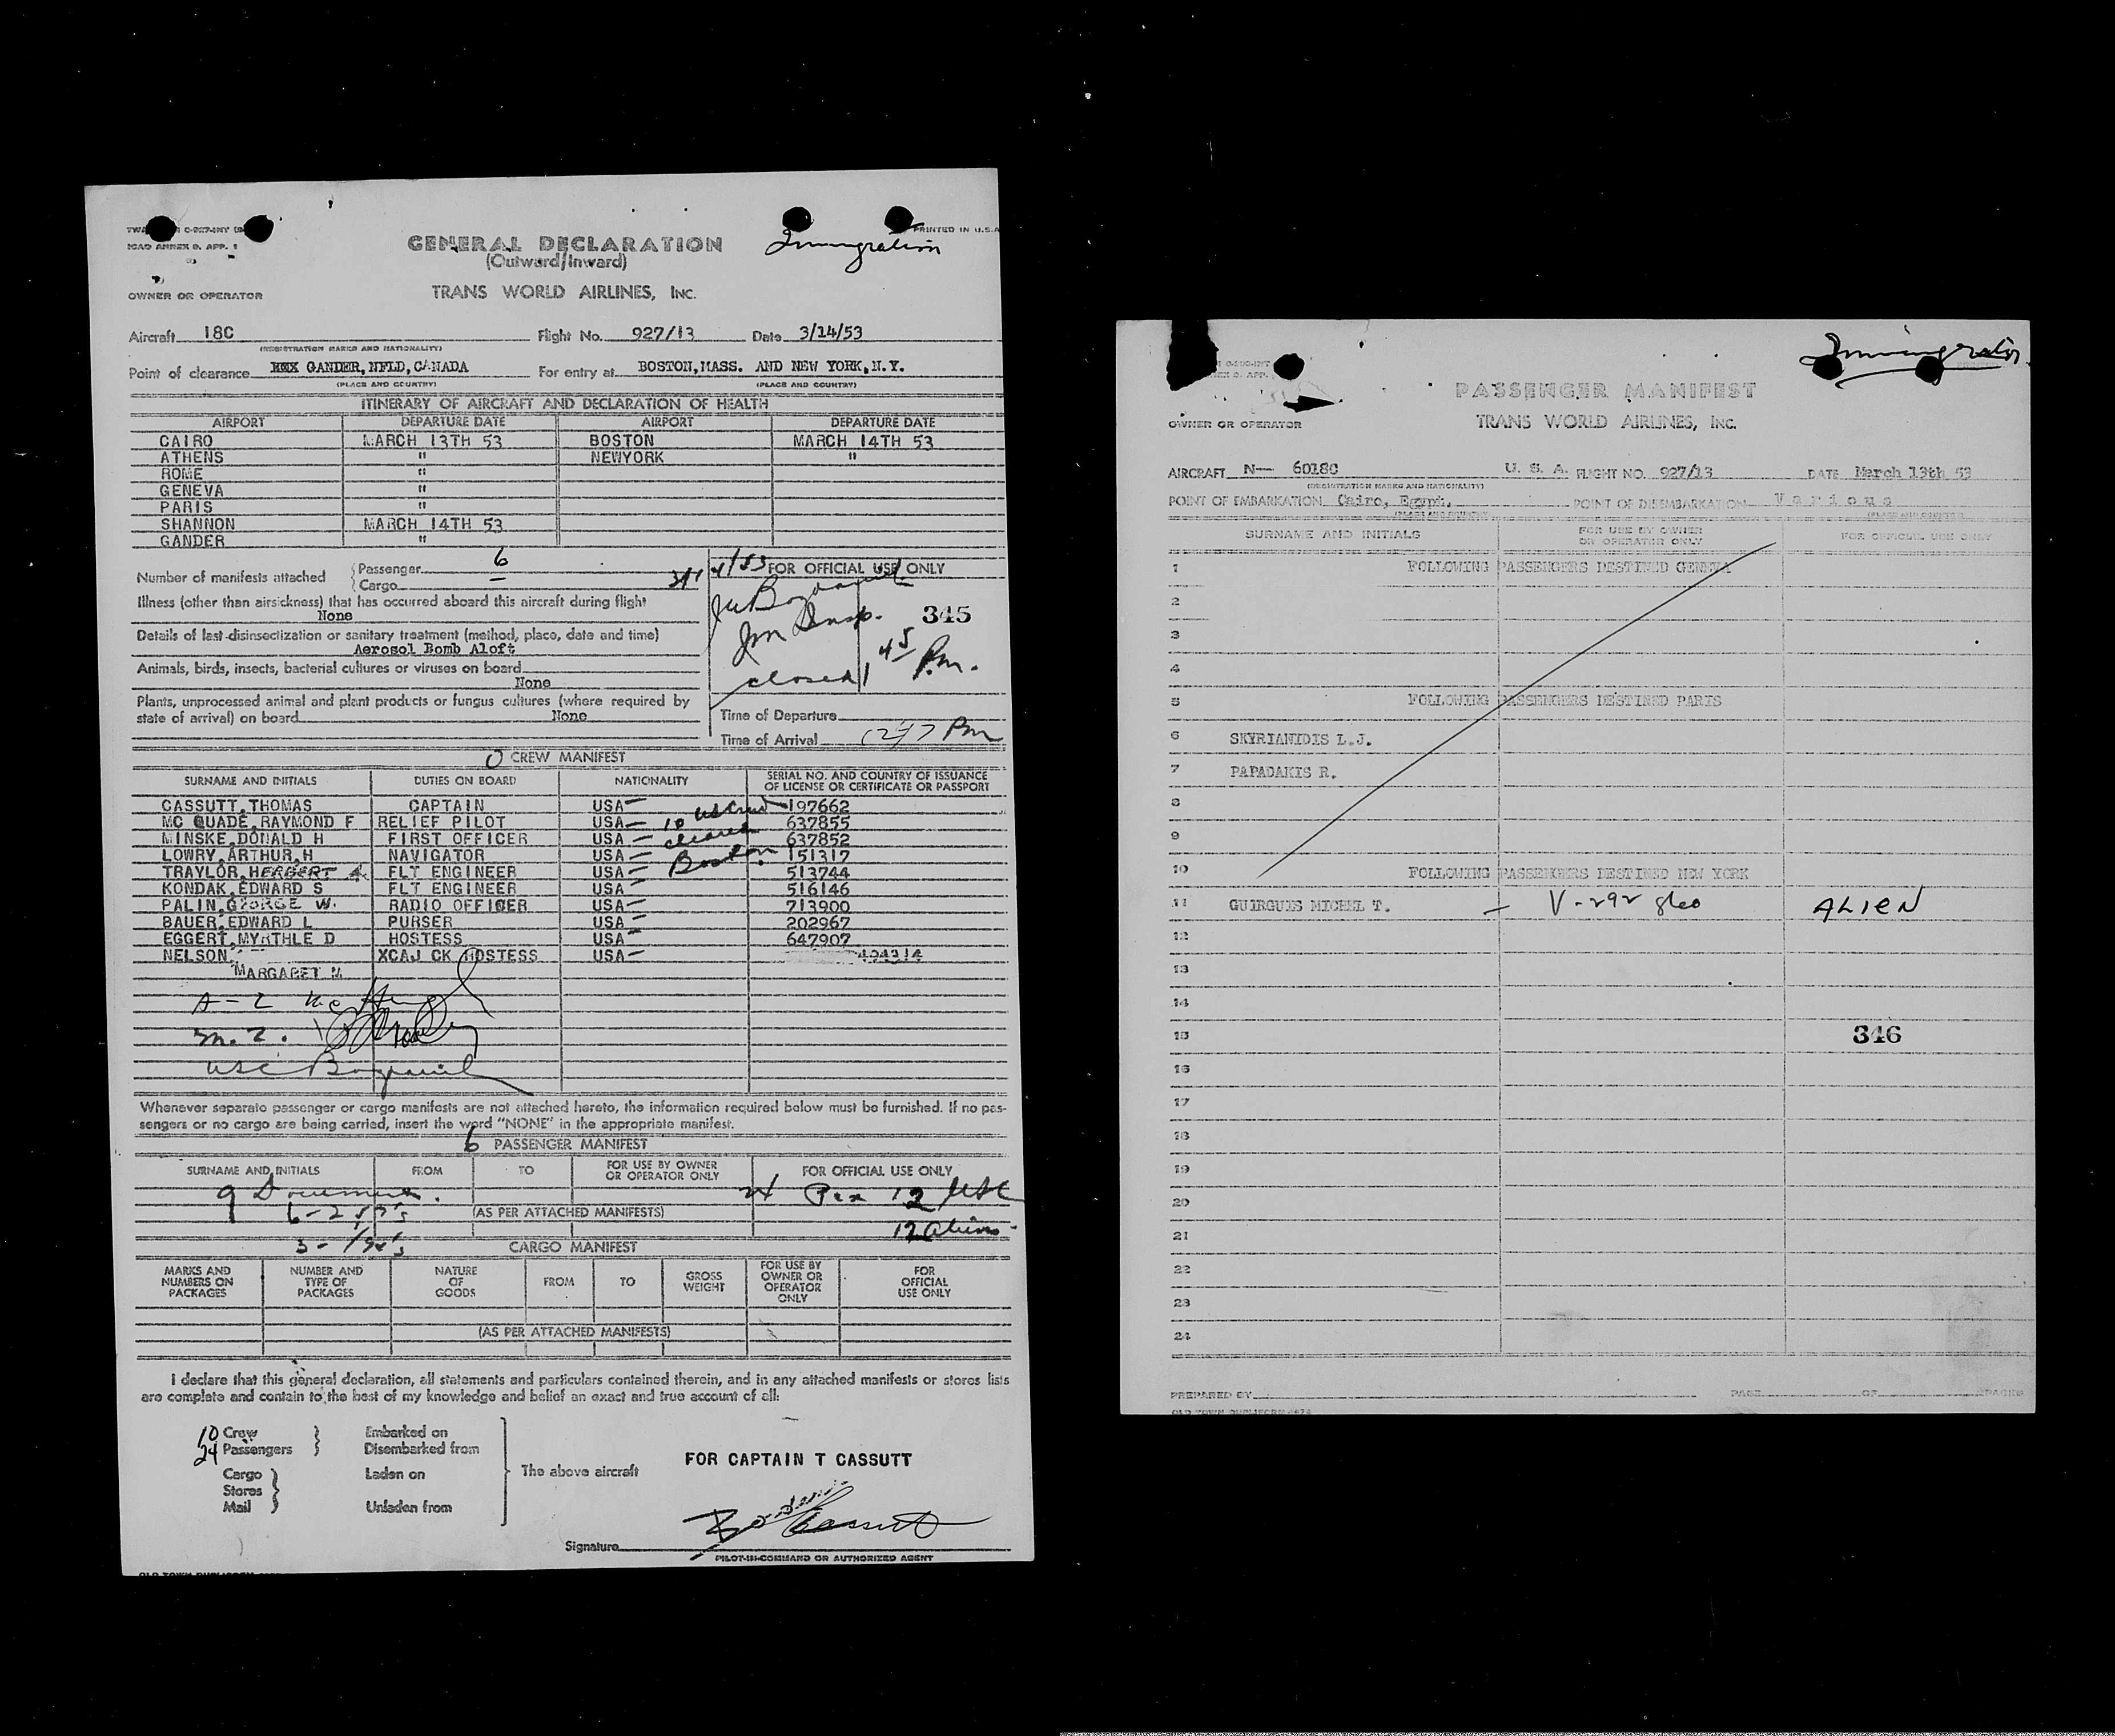 PRINTED IN U.S.A
ICAO ANNEX 9. APP. 1
Immigration
GENERAL DECLARATION
(Outward/Inward)
OWNER OR OPERATOR
TRANS WORLD AIRLINES, INC.
Aircraft 18C Flight No. 927/13 Date 3/14/53
(REGISTRATION MARKS AND NATIONALITY)
Point of clearance GANDER, NFLD, CANADA For entry at BOSTON, MASS. AND NEW YORK, N.Y.
(PLACE AND COUNTRY) (PLACE AND COUNTRY)
ITINERARY OF AIRCRAFT AND DECLARATION OF HEALTH
AIRPORT DEPARTURE DATE AIRPORT DEPARTURE DATE
CAIRO MARCH 13TH 53 BOSTON MARCH 14TH 53
ATHENS " NEWYORK "
ROME "
GENEVA "
PARIS "
SHANNON MARCH 14TH 53
GANDER "
Number of manifests attached
Passenger 6
Cargo —
FOR OFFICIAL USE ONLY
345
closed 1 45 P.m.
Illness (other than airsickness) that has occurred aboard this aircraft during flight
None
Details of last disinsectization or sanitary treatment (method, place, date and time)
Aerosol Bomb Aloft
Animals, birds, insects, bacterial cultures or viruses on board
None
Plants, unprocessed animal and plant products or fungus cultures (where required by
state of arrival) on board None
Time of Departure
Time of Arrival Pm
CREW MANIFEST
SURNAME AND INITIALS DUTIES ON BOARD NATIONALITY SERIAL NO. AND COUNTRY OF ISSUANCE
OF LICENSE OR CERTIFICATE OR PASSPORT
CASSUTT, THOMAS CAPTAIN USA 197662
MC QUADE, RAYMOND F RELIEF PILOT USA 637855
MINSKE, DONALD H FIRST OFFICER USA 637852
LOWRY, ARTHUR, H NAVIGATOR USA 151317
TRAYLOR, HERBERT A. FLT ENGINEER USA 513744
KONDAK, EDWARD S FLT ENGINEER USA 516146
PALIN, GEORGE W. RADIO OFFICER USA 713900
BAUER, EDWARD L PURSER USA 202967
EGGERT, MYRTHLE D HOSTESS USA 647907
NELSON, CK HOSTESS USA
MARGARET M
10
cleared
Boston
Whenever separate passenger or cargo manifests are not attached hereto, the information required below must be furnished. If no pas-
sengers or no cargo are being carried, insert the word "NONE" in the appropriate manifest.
6 PASSENGER MANIFEST
SURNAME AND INITIALS FROM TO FOR USE BY OWNER
OR OPERATOR ONLY FOR OFFICIAL USE ONLY
9 Documents. 24 Pax 12 USC
(AS PER ATTACHED MANIFESTS)
12 Aliens
CARGO MANIFEST
MARKS AND
NUMBERS ON
PACKAGES
NUMBER AND
TYPE OF
PACKAGES
NATURE
OF
GOODS
FROM
TO
GROSS
WEIGHT
FOR USE BY
OWNER OR
OPERATOR
ONLY
FOR
OFFICIAL
USE ONLY
(AS PER ATTACHED MANIFESTS)
I declare that this general declaration, all statements and particulars contained therein, and in any attached manifests or stores lists
are complete and contain to the best of my knowledge and belief an exact and true account of all:
10 Crew Embarked on
24 Passengers Disembarked from
Cargo Laden on
Stores
Mail Unladen from
The above aircraft
FOR CAPTAIN T CASSUTT
Signature
PILOT-IN-COMMAND OR AUTHORIZED AGENT
Immigration
PASSENGER MANIFEST
OWNER OR OPERATOR
TRANS WORLD AIRLINES, INC.
AIRCRAFT N— 6018C U. S. A. FLIGHT NO. 927/13 DATE March 13th 53
(REGISTRATION MARKS AND NATIONALITY)
POINT OF EMBARKATION Cairo, Egypt, POINT OF DISEMBARKATION Various
(PLACE AND COUNTRY) (PLACE AND COUNTRY)
SURNAME AND INITIALS FOR USE BY OWNER
OR OPERATOR ONLY FOR OFFICIAL USE ONLY
1 FOLLOWING PASSENGERS DESTINED GENEVA
2
3
4
5 FOLLOWING PASSENGERS DESTINED PARIS
6 SKYRIANIDIS L.J.
7 PAPADAKIS R.
8
9
10 FOLLOWING PASSENGERS DESTINED NEW YORK
11 GUIRGUES MICHEL T. — ALIEN
12
13
14
15 346
16
17
18
19
20
21
22
23
24
PREPARED BY PAGE OF PAGES